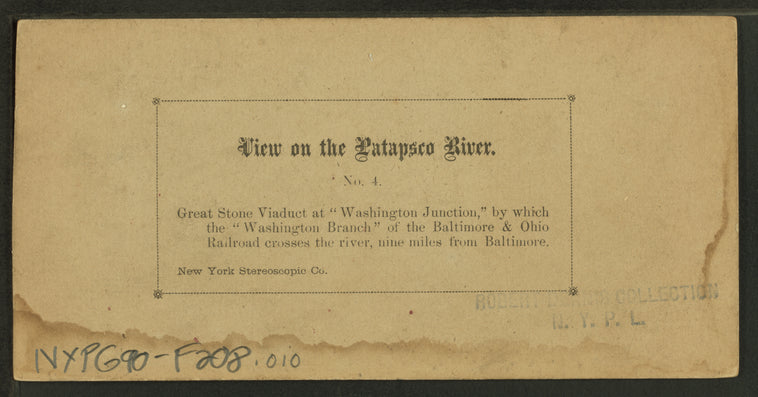 View on the Patapsco River.
No. 4.
Great Stone Viaduct at "Washington Junction," by which
the "Washington Branch" of the Baltimore & Ohio
Railroad crosses the river, nine miles from Baltimore.
New York Stereoscopic Co.
ROBERT COLLECTION
N. Y. P. L.
NXPG90-F208.010